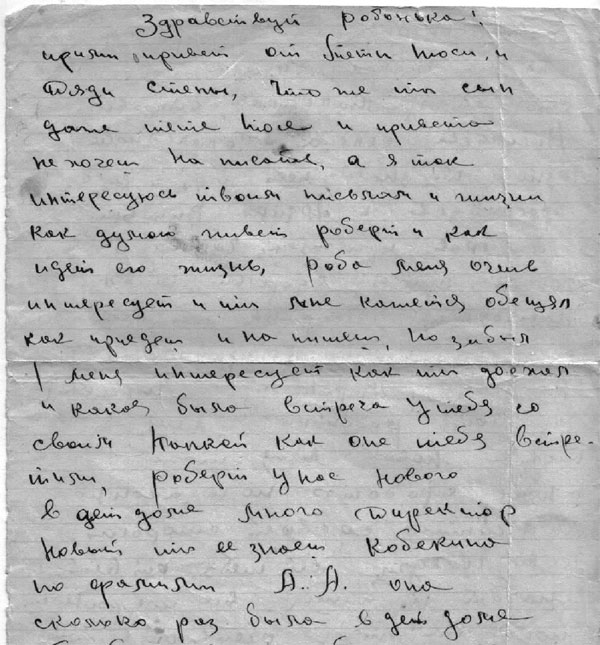 Здравствуй робонька!
прими привет от Тети Тоси, и
Дяди Степы, Что же ты сын
даже тете Тосе и привета
не хочеш написать, а я так
интересуюсь твоим письмам и жизни
как думаю живет роберт и как
идет его жизнь, роба меня очень
интересует и ты мне кажется обещял
как приедеш и напишеш, позабыл
меня интересует как ты доехал
и какая была встреча у тебя со
своим папкой как оне тебя встре-
тили, роберт у нас нового
в дет доме много директор
новый ты ее знаеш Кобекина
по фамилии А. А. она
сколько раз была в дет доме